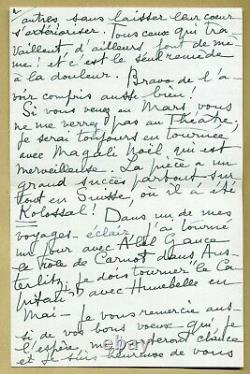 autres sans laisser leur coeur
s'extérioriser. Tous ceux qui tra-
vaillent d'ailleurs font de mê-
me! et c'est le seul remède
à la douleur. Bravo de l'a-
voir compris aussi bien!
Si vous venez en Mars vous
ne me verrez pas au Théatre,
je serai toujours en tournée
avec Magali Noil, qui est
merveilleuse. La pièce a un
grand succès partout sur-
tout en Suisse, où il a été
Kolossal! Dans un de mes
voyages-éclair, j'ai tourné
un jour avec Abel Gance
le rôle de Carnot dans Aus-
terlitz, je dois tourner le Ca-
pitan avec Hunebelle en
Mai - je vous remercie aus-
si de vos bons voeux qui je
l'espère, me porteront chance
et je suis heureuse de vous